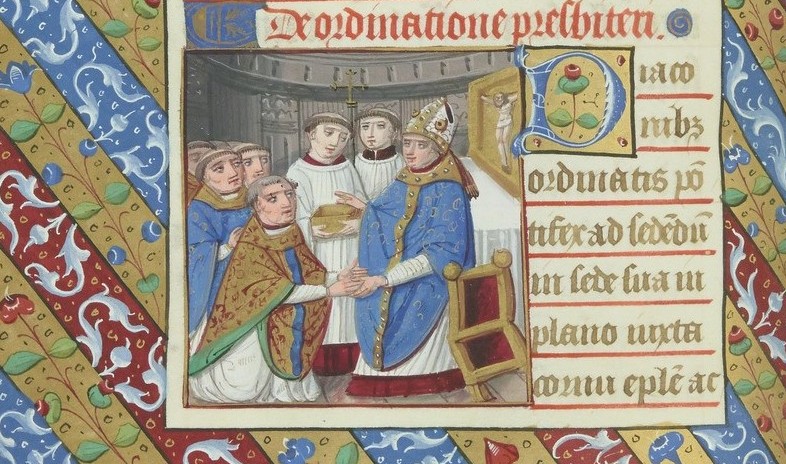 De ordinatione presbiteri.
Diaco
nibz
ordinatis pō
tifex ad sedēdū
in sede sua in
plano iuxta
cornu eplē ac